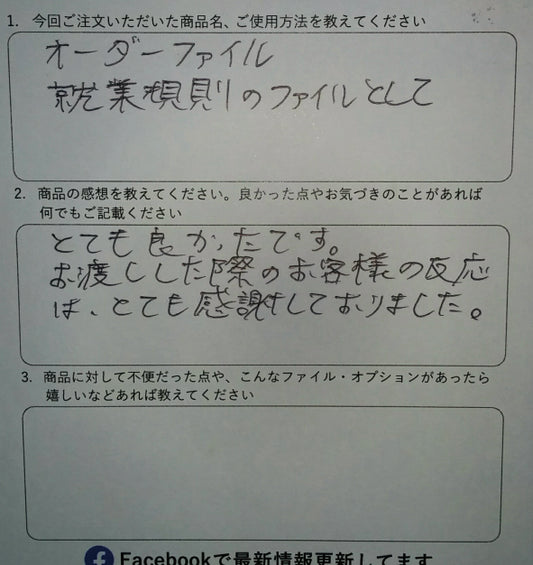 1. 今回ご注文いただいた商品名、ご使用方法を教えてください
オーダーファイル
就業規則のファイルとして
2. 商品の感想を教えてください。良かった点やお気づきのことがあれば
何でもご記載ください
とても良かったです。
お渡しした際のお客様の反応
は、とても感謝しておりました。
3. 商品に対して不便だった点や、こんなファイル・オプションがあったら
嬉しいなどあれば教えてください
Facebookで最新情報更新してます